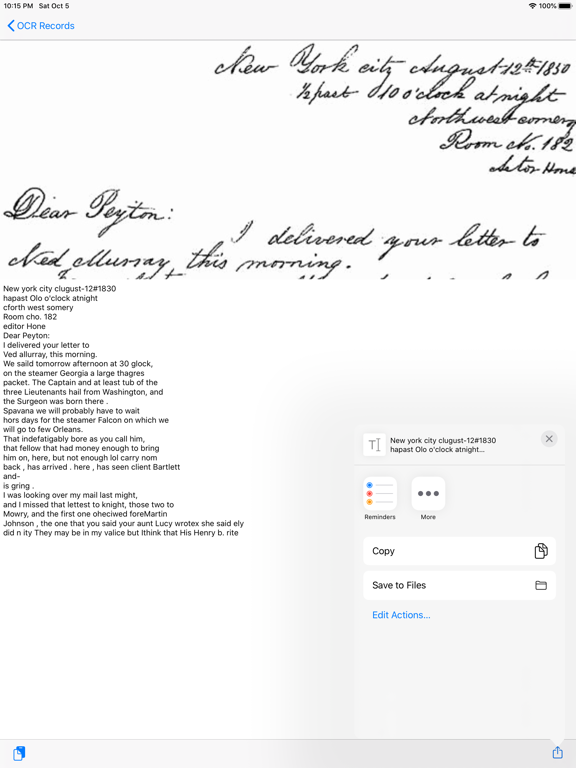 10:15 PM Sat Oct 5
100%
OCR Records
New York city August 12th 1850
½ past 10 o'clock at night
Northwest corner
Room No. 182
Astor House
Dear Peyton:
I delivered your letter to
Ned Murray, this morning.
New york city clugust-12#1830
hapast Olo o'clock atnight
cforth west somery
Room cho. 182
editor Hone
Dear Peyton:
I delivered your letter to
Ved allurray, this morning.
We saild tomorrow afternoon at 30 glock,
on the steamer Georgia a large thagres
packet. The Captain and at least tub of the
three Lieutenants hail from Washington, and
the Surgeon was born there .
Spavana we will probably have to wait
hors days for the steamer Falcon on which we
will go to few Orleans.
That indefatigably bore as you call him,
that fellow that had money enough to bring
him on, here, but not enough lol carry nom
back , has arrived . here , has seen client Bartlett
and-
is gring .
I was looking over my mail last might,
and I missed that lettest to knight, those two to
Mowry, and the first one oheciwed foreMartin
Johnson , the one that you said your aunt Lucy wrotex she said ely
did n ity They may be in my valice but Ithink that His Henry b. rite
New york city clugust-12#1830
hapast Olo o'clock atnight...
Reminders
More
Copy
Save to Files
Edit Actions...